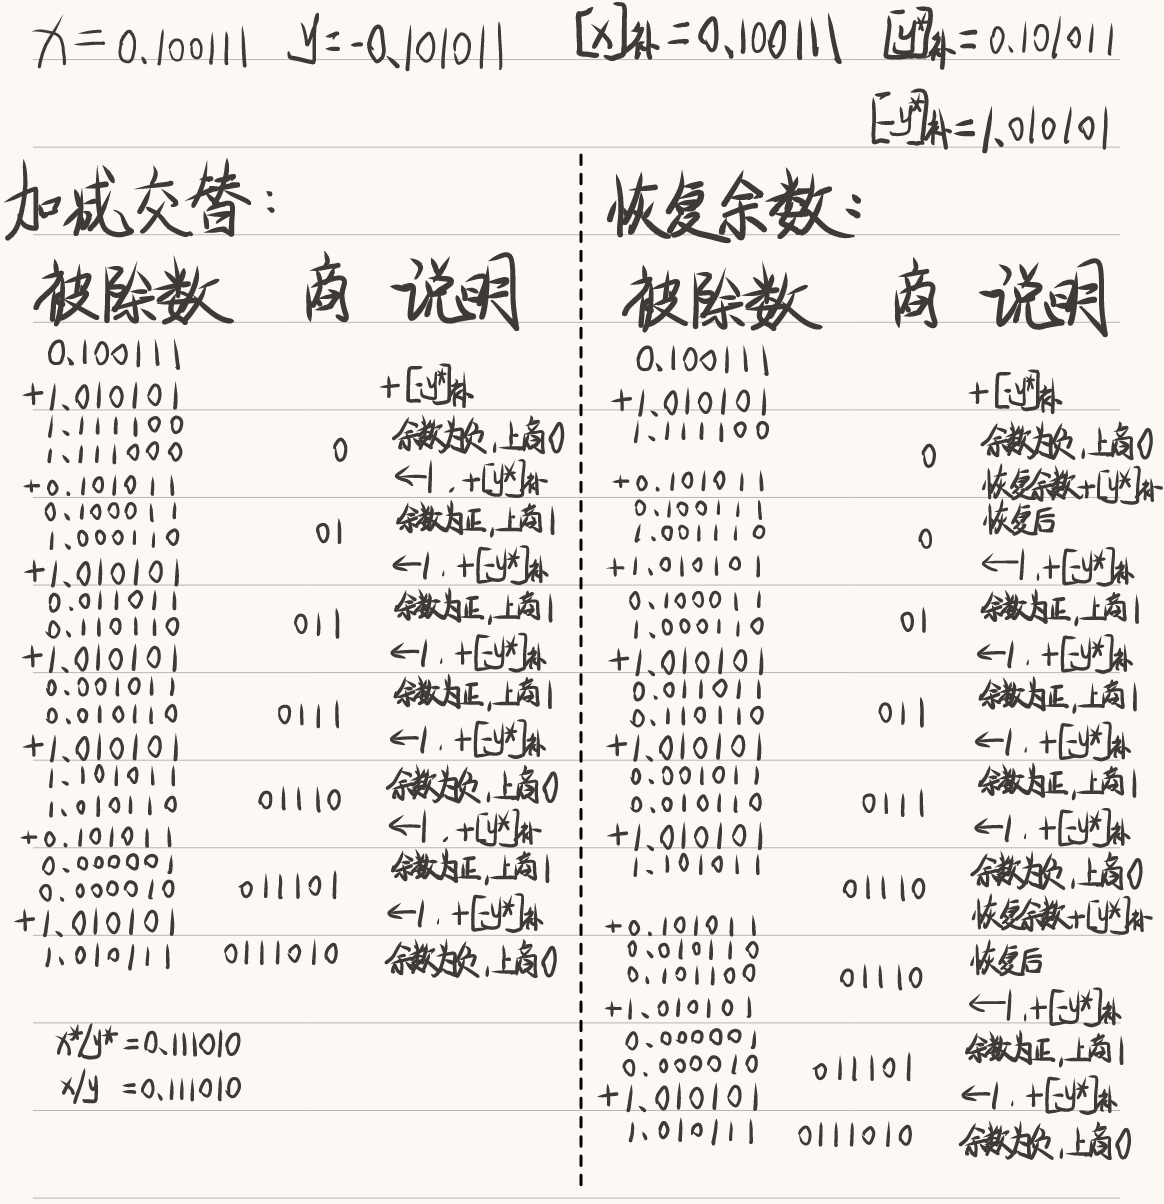 x = 0.100111 y = -0.101011 [x]补 = 0.100111 [y*]补 = 0.101011
[-y*]补 = 1.010101
加减交替:
被除数 商 说明
0.100111
+1.010101 +[-y*]补
1.111100
1.111000 0 余数为负,上商0
+0.101011 ←1,+[y*]补
0.100011
1.000110 01 余数为正,上商1
+1.010101 ←1,+[-y*]补
0.011011
0.110110 011 余数为正,上商1
+1.010101 ←1,+[-y*]补
0.001011
0.010110 0111 余数为正,上商1
+1.010101 ←1,+[-y*]补
1.101011
1.010110 01110 余数为负,上商0
+0.101011 ←1,+[y*]补
0.000001
0.000010 011101 余数为正,上商1
+1.010101 ←1,+[-y*]补
1.010111 0111010 余数为负,上商0
x*/y* = 0.111010
x/y = 0.111010
恢复余数:
被除数 商 说明
0.100111
+1.010101 +[-y*]补
1.111100 0 余数为负,上商0
+0.101011 恢复余数+[y*]补
0.100111 恢复后
1.001110 0
+1.010101 ←1,+[-y*]补
0.100011 余数为正,上商1
1.000110 01
+1.010101 ←1,+[-y*]补
0.011011 余数为正,上商1
0.110110 011
+1.010101 ←1,+[-y*]补
0.001011 余数为正,上商1
0.010110 0111
+1.010101 ←1,+[-y*]补
1.101011 01110 余数为负,上商0
+0.101011 恢复余数+[y*]补
0.010110 恢复后
0.101100 01110
+1.010101 ←1,+[-y*]补
0.000001 余数为正,上商1
0.000010 011101
+1.010101 ←1,+[-y*]补
1.010111 0111010 余数为负,上商0